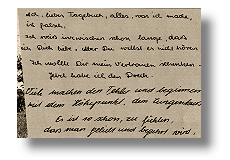 Ach, liebes Tagebuch, alles, was ich mache,
ist falsch.
Ich weiß inzwischen schon lange, dass
ich Dich liebe, aber Du willst es nicht hören
Ich wollte Dir mein Vertrauen schenken -
Jetzt habe ich den Dreck.
Viele machen den Fehler und beginnen
mit dem Höhepunkt, dem Zungenkuss.
Es ist so schön, zu fühlen,
dass man geliebt und begehrt wird.